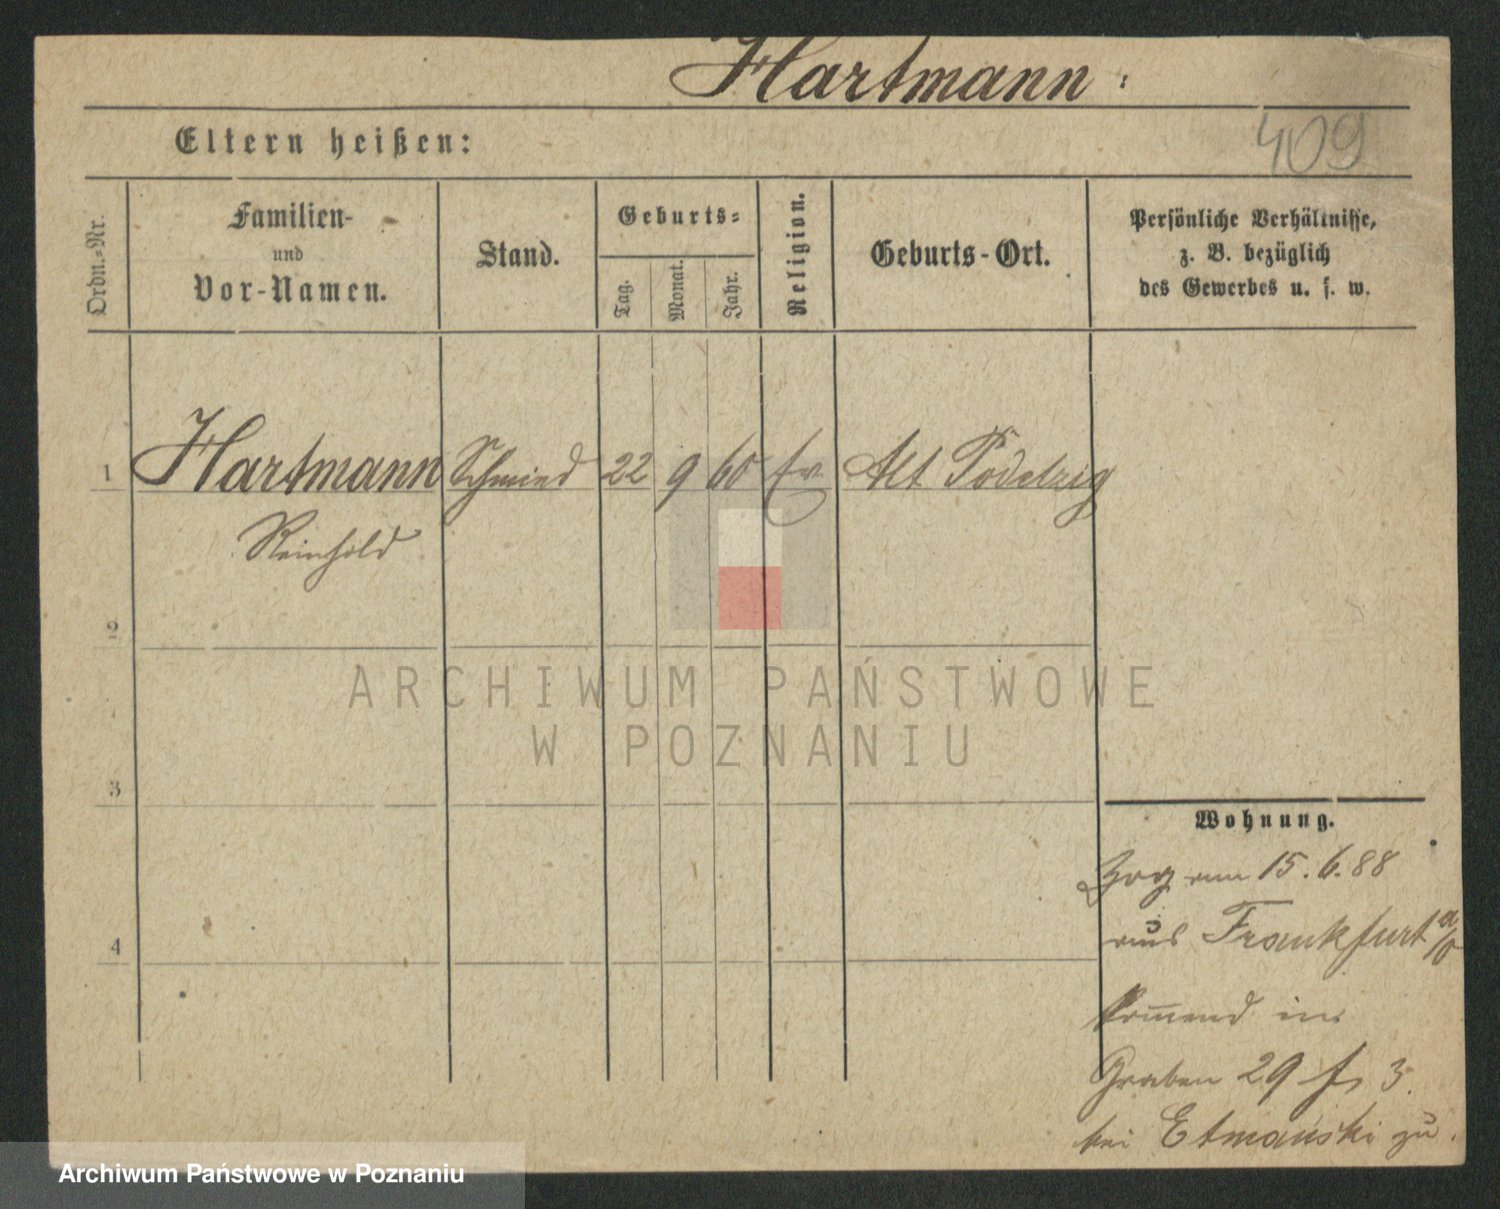 Hartmann:
409
Eltern heißen:
Ordn.-Nr.
Familien-
und
Vor-Namen.
Stand.
Geburts-
Tag.
Monat.
Jahr.
Religion.
Geburts-Ort.
Persönliche Verhältnisse,
z. B. bezüglich
des Gewerbes u. s. w.
1 Hartmann Schmied 22 9 60 Ev Alt Podelzig
Reinhold
2
3
4
Wohnung.
Zog am 15.6.88
aus Frankfurt a/O
kom̄end in
Graben 29 3.
bei Etmański zu.
ARCHIWUM PAŃSTWOWE
W POZNANIU
Archiwum Państwowe w Poznaniu